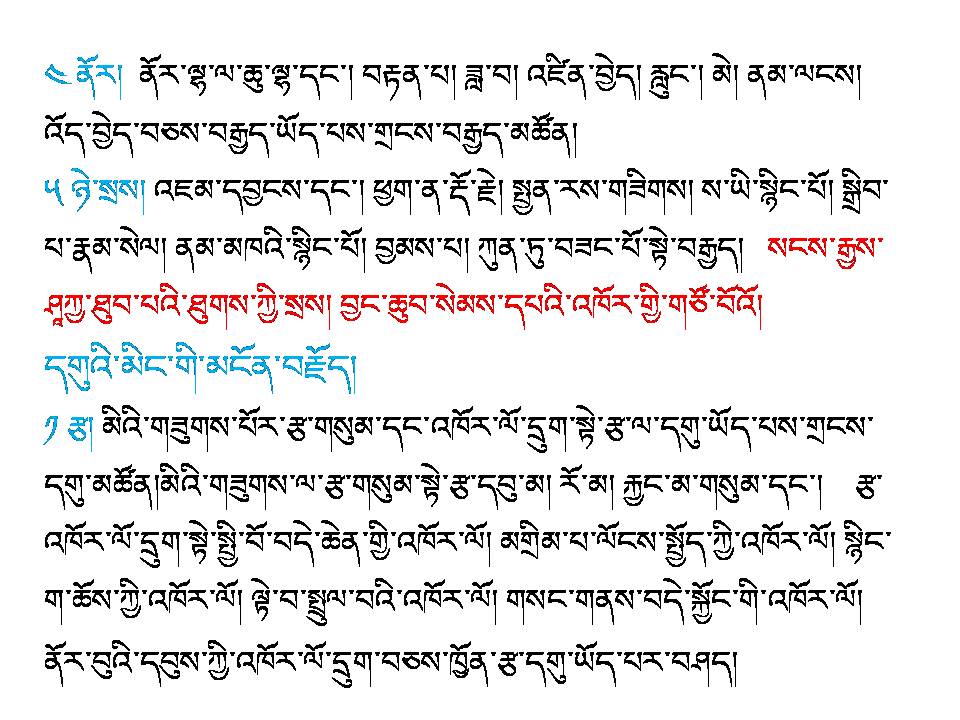 ༤ ནོར། ནོར་ལྷ་ལ་ཆུ་ལྷ་དང་། བརྟན་པ། ཟླ་བ། འཛིན་བྱེད། རླུང་། མེ། ནམ་ལངས།
འོད་བྱེད་བཅས་བརྒྱད་ཡོད་པས་གྲངས་བརྒྱད་མཚོན།
༥ ཉེ་སྲས། འཇམ་དབྱངས་དང་། ཕྱག་ན་རྡོ་རྗེ། སྤྱན་རས་གཟིགས། ས་ཡི་སྙིང་པོ། སྒྲིབ་
པ་རྣམ་སེལ། ནམ་མཁའི་སྙིང་པོ། བྱམས་པ། ཀུན་ཏུ་བཟང་པོ་སྟེ་བརྒྱད། སངས་རྒྱས་
ཤཱཀྱ་ཐུབ་པའི་ཐུགས་ཀྱི་སྲས། བྱང་ཆུབ་སེམས་དཔའི་འཁོར་གྱི་གཙོ་བོའོ།
དགུའི་མིང་གི་མངོན་བརྗོད།
༡ རྩ། མིའི་གཟུགས་པོར་རྩ་གསུམ་དང་འཁོར་ལོ་དྲུག་སྟེ་རྩ་ལ་དགུ་ཡོད་པས་གྲངས་
དགུ་མཚོན།མིའི་གཟུགས་ལ་རྩ་གསུམ་སྟེ་རྩ་དབུ་མ། རོ་མ། རྐྱང་མ་གསུམ་དང་། རྩ་
འཁོར་ལོ་དྲུག་སྟེ་སྤྱི་བོ་བདེ་ཆེན་གྱི་འཁོར་ལོ། མགྲིམ་པ་ལོངས་སྤྱོད་ཀྱི་འཁོར་ལོ། སྙིང་
ག་ཆོས་ཀྱི་འཁོར་ལོ། ལྟེ་བ་སྤྲུལ་བའི་འཁོར་ལོ། གསང་གནས་བདེ་སྐྱོང་གི་འཁོར་ལོ།
ནོར་བུའི་དབུས་ཀྱི་འཁོར་ལོ་དྲུག་བཅས་ཁྱོན་རྩ་དགུ་ཡོད་པར་བཤད།